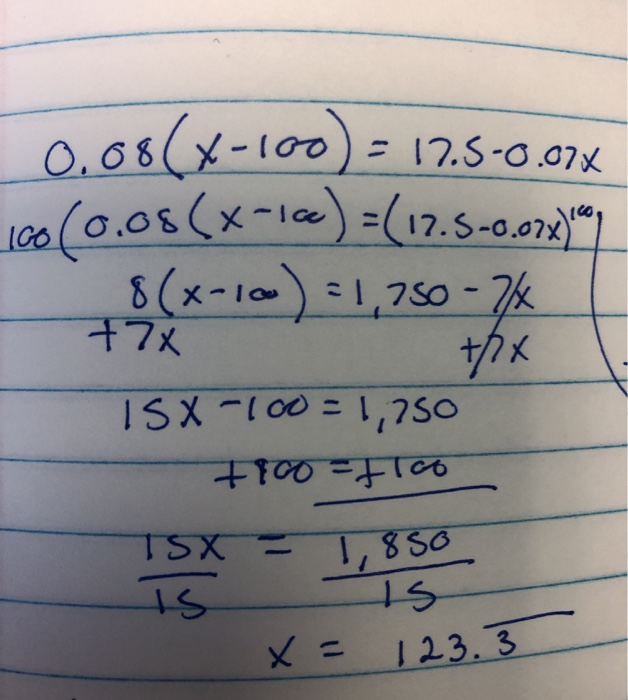 0.08(x-100) = 17.5-0.07x
100(0.08(x-100) =(17.5-0.07x)100
8(x-100) = 1,750 - 7x
+7x +7x
15x -100 = 1,750
+100 =+100
15x = 1,850
15 15
x = 123.3̅